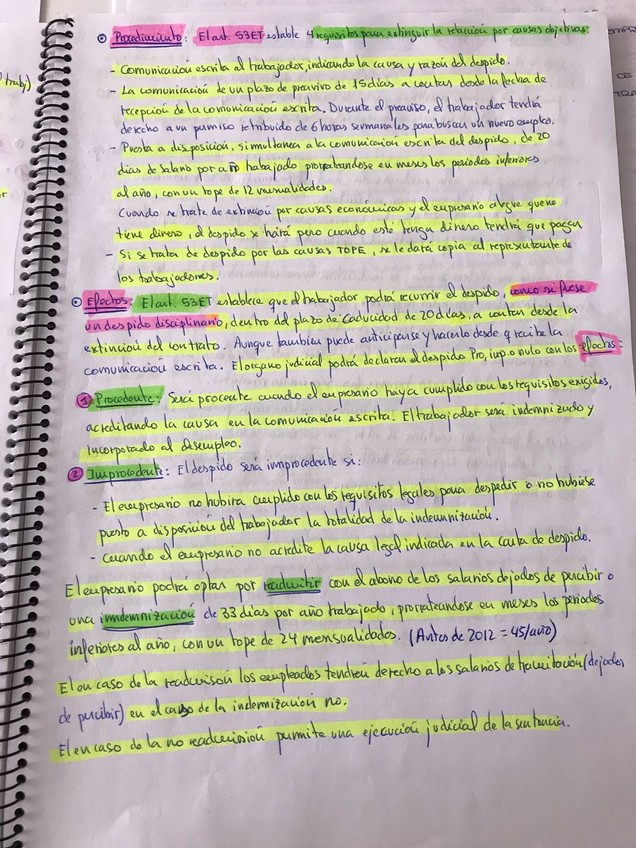 Procedimiento: El art. 53ET estable 4 requisitos para extinguir la relación por causas objetivas:
- Comunicación escrita al trabajador, indicando la causa y razón del despido.
- La comunicación de un plazo de preavivo de 15 días a contar desde la fecha de
recepción de la comunicación escrita. Durante el preaviso, el trabajador tendrá
derecho a un permiso retribuido de 6 horas semanales para buscar un nuevo empleo.
- Puesta a disposición, simultanea a la comunicación escrita del despido, de 20
días de salario por año trabajado prorrateandose en meses los periodos inferiores
al año, con un tope de 12 mensualidades.
Cuando se trate de extinción por causas económicas y el empresario alegue que no
tiene dinero, el despido se hará pero cuando este tenga dinero tendrá que pagar
- Si se trata de despido por las causas TOPE, se le dará copia al representante de
los trabajadores.
Efectos: El art. 53ET establece que el trabajador podrá recurrir el despido, como si fuese
un despido disciplinario, dentro del plazo de caducidad de 20 días, a contar desde la
extinción del contrato. Aunque también puede anticiparse y hacerlo desde q recibe la
comunicación escrita. El organo judicial podrá declarar el despido Pro, imp. o nulo con los efectos:
1 Procedente: Será procente cuando el empresario haya cumplido con los requisitos exigidos,
acreditando la causa en la comunicación escrita. El trabajador será indemnizado y
incorporado al desempleo.
2 Improcedente: El despido será improcedente si:
- El empresario no hubira cumplido con los requisitos legales para despedir o no hubiese
puesto a disposición del trabajador la totalidad de la indemnización.
- Cuando el empresario no acredite la causa legal indicada en la carta de despido.
El empresario podrá optar por readmitir con el abono de los salarios dejados de percibir o
una indemnización de 33 días por año trabajado, prorrateandose en meses los periodos
inferiores al año, con un tope de 24 mensualidades. (Antes de 2012 = 45/año)
El en caso de la readmison los empleados tendrán derecho a los salarios de tramitación (dejados
de percibir) en el caso de la indemnización no.
El en caso de la no readmisión permite una ejecución judicial de la sentencia.